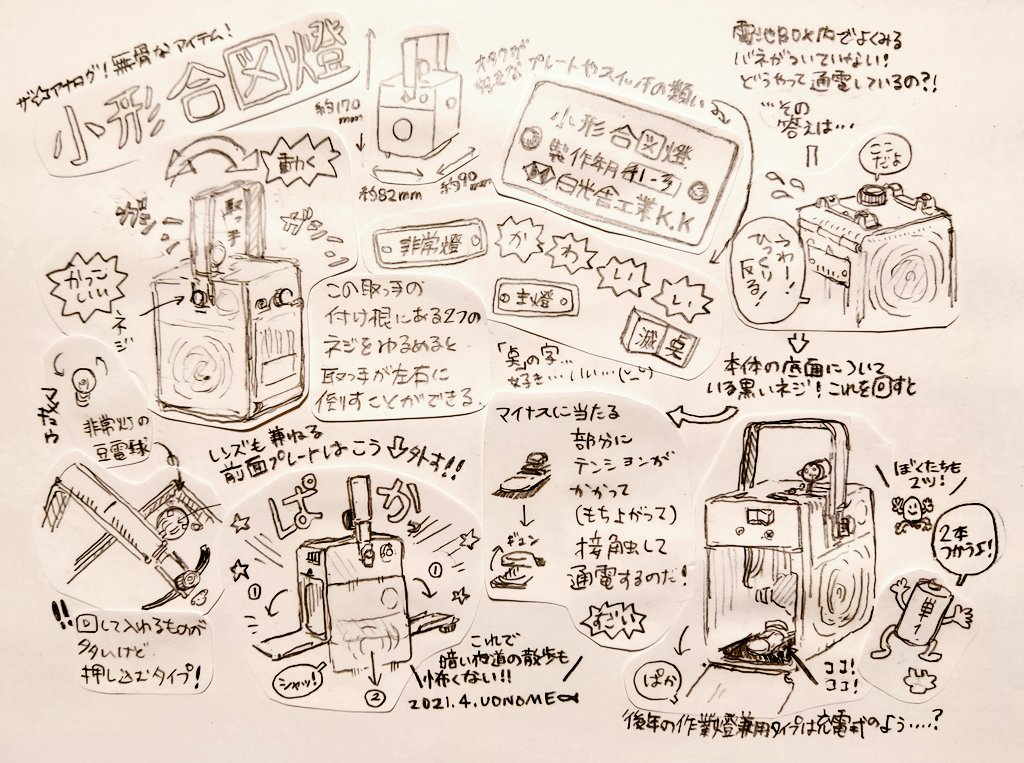 ザ☆アナログ!無骨なアイテム!
小形合図燈
約170
mm
約82mm
約90
mm
オタクが
プレートやスイッチの類い
小形合図燈
製作年月
白光舎工業K.K
非常燈
かわいい
主燈
滅
「臭」の字…
好き…いい…
電池BOX内でよくみる
バネがついていない!
どうやって通電しているの?!
…その
答えは…
ここ
だよ
うわー!
ひっくり
反る!
本体の底面について
いる黒いネジ!これを回すと
動く
取っ手
ガシーン
ガシーン
かっこ
いい
ネジ
この取っ手の
付け根にある2つの
ネジをゆるめると
取っ手が左右に
倒すことができる
非常灯の
豆電球
!!回して入れるものが
多いけど
押し込むタイプ!
レンズも兼ねる
前面プレートはこう外す!!
ぱか
①
①
シャッ!
②
これで
暗い夜道の散歩も
怖くない!!
2021.4.UONOME
マイナスに当たる
部分に
テンションが
かかって
(もちよがって)
接触して
通電するのだ!
ギュン
すごい
ぼくたちも
2ツ!
2本
つかうよ!
単1
ココ!
ココ!
ぱか
後年の作業燈兼用タイプは充電式のよう……?